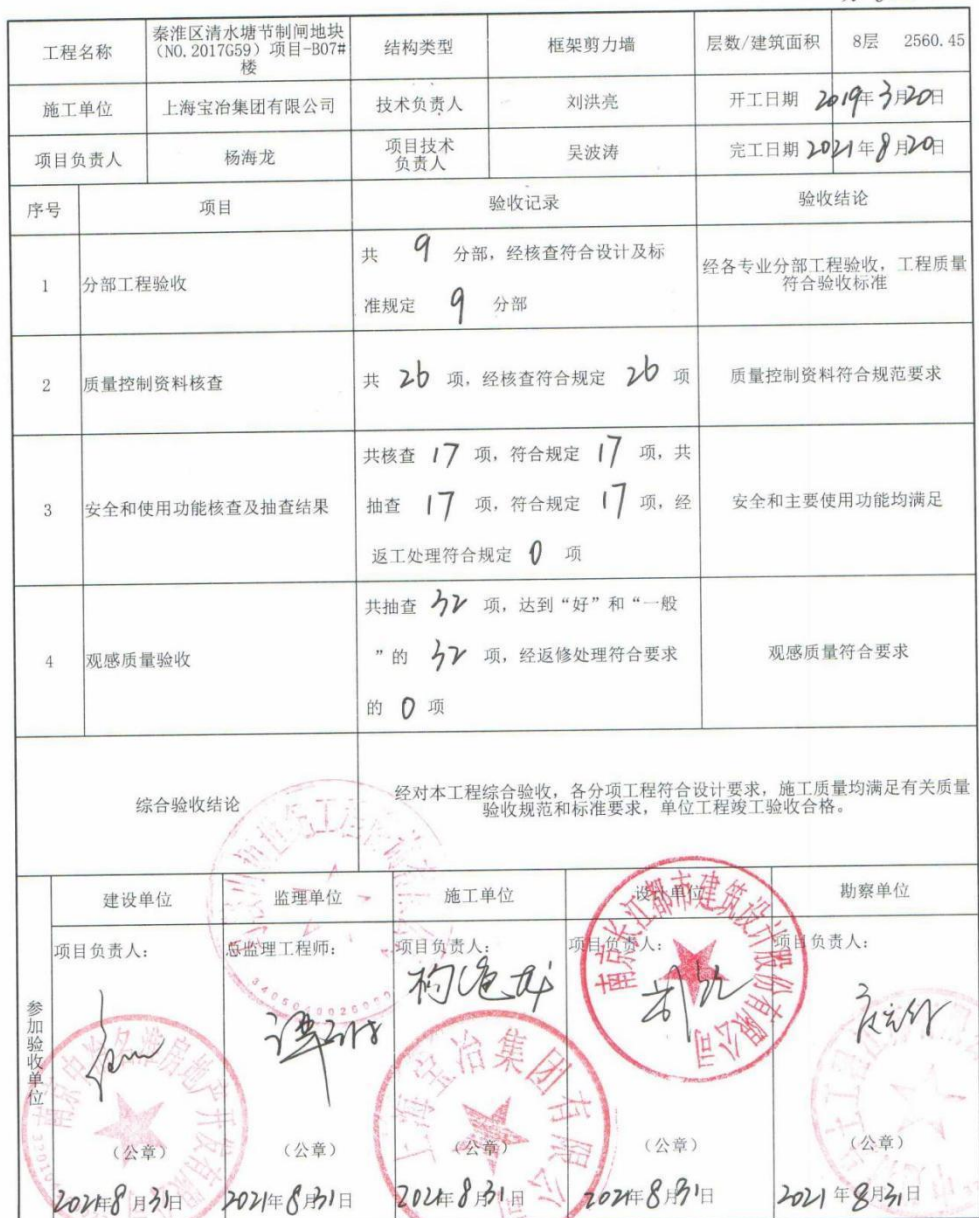 工程名称
秦淮区清水塘节制闸地块
(NO.2017G59）项目-B07#
楼
结构类型
框架剪力墙
层数/建筑面积
8层 2560.45
施工单位
上海宝冶集团有限公司
技术负责人
刘洪亮
开工日期 2019年3月20日
项目负责人
杨海龙
项目技术
负责人
吴波涛
完工日期 2021年8月20日
序号
项目
验收记录
验收结论
1
分部工程验收
共 9 分部，经核查符合设计及标
准规定 9 分部
经各专业分部工程验收，工程质量
符合验收标准
2
质量控制资料核查
共 26 项，经核查符合规定 26 项
质量控制资料符合规范要求
3
安全和使用功能核查及抽查结果
共核查 17 项，符合规定 17 项，共
抽查 17 项，符合规定 17 项，经
返工处理符合规定 0 项
安全和主要使用功能均满足
4
观感质量验收
共抽查 32 项，达到“好”和“一般
”的 32 项，经返修处理符合要求
的 0 项
观感质量符合要求
综合验收结论
经对本工程综合验收，各分项工程符合设计要求，施工质量均满足有关质量
验收规范和标准要求，单位工程竣工验收合格。
参加验收单位
建设单位
监理单位
施工单位
设计单位
勘察单位
项目负责人：
总监理工程师：
项目负责人：
项目负责人：
项目负责人：
杨海龙
上海宝冶集团有限公司
南京长江都市建筑设计股份有限公司
（公章）
（公章）
（公章）
（公章）
（公章）
2021年8月31日
2021年8月31日
2021年8月31日
2021年8月31日
2021年8月31日